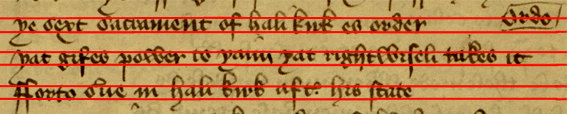 ye sext sacrament of hali kirk es order Ordo
yat gifes power to yaim yat rightwiseli takes it
Forto serue in hali kirk aft his state